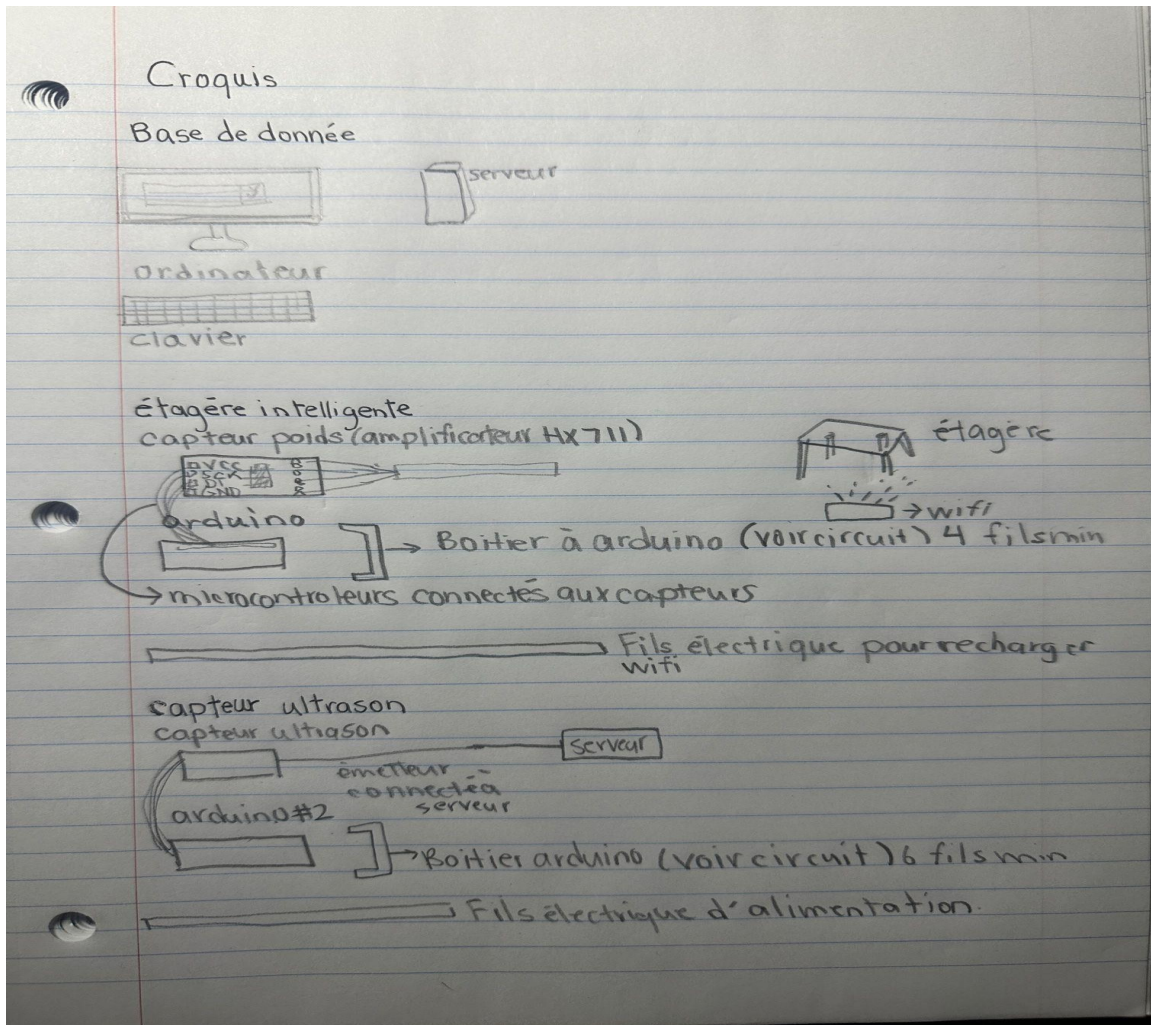 Croquis
Base de donnée
serveur
ordinateur
clavier
étagère intelligente
capteur poids (amplificateur HX711)
étagère
VCC
SCK
DT
GND
→ wifi
arduino
→ Boitier à arduino (voir circuit) 4 fils min
→ microcontroleurs connectés aux capteurs
Fils électrique pour recharger
wifi
capteur ultrason
capteur ultrason
serveur
émetteur
connecté à
serveur
arduino #2
→ Boitier arduino (voir circuit) 6 fils min
Fils électrique d'alimentation.